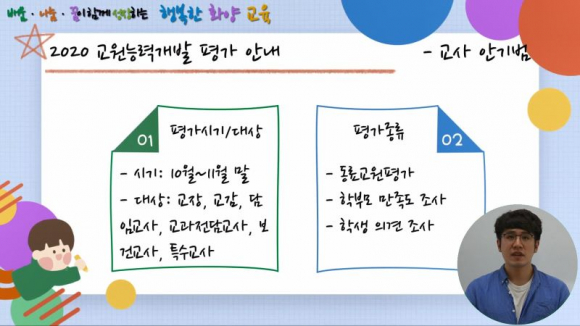 바른 · 나눔 · 꿈이 함께 성장하는 행복한 화양 교육
2020 교원능력개발 평가 안내 - 교사 안기범
01 평가시기/대상
- 시기: 10월~11월 말
- 대상: 교장, 교감, 담
임교사, 교과전담교사, 보
건교사, 특수교사
평가종류 02
- 동료교원평가
- 학부모 만족도 조사
- 학생 의견 조사